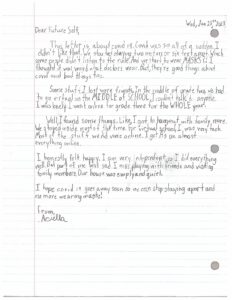 Wed, Jan 25th, 2023
Dear Future Self,
This letter is about covid 19. Covid was so all of a sudden. I
didn't like that we
some people didn't listen to the rule. And we had to wear MASKS! I
thought it was weird what doctors wear. But, there's good things about
covid and bad things too.
Some stuff I lost were friends. In the middle of grade two we had
to go virtual in the MIDDLE of SCHOOL! I couldn't talk to anyone.
I was lonely. I went online for grade three for the WHOLE year!
Well I found some things. Like, I got to hang out with family more.
We stayed inside most of the time for virtual school. I was very
of the stuff we did was online. I got to do almost
everything online.
I honestly felt happy. I am very independent so I did everything
well. One part of me felt sad. I miss playing with friends and visiting
family members. Our house was empty and quiet.
I hope covid 19 goes away soon so we can stop staying apart and
no more wearing masks!
From,